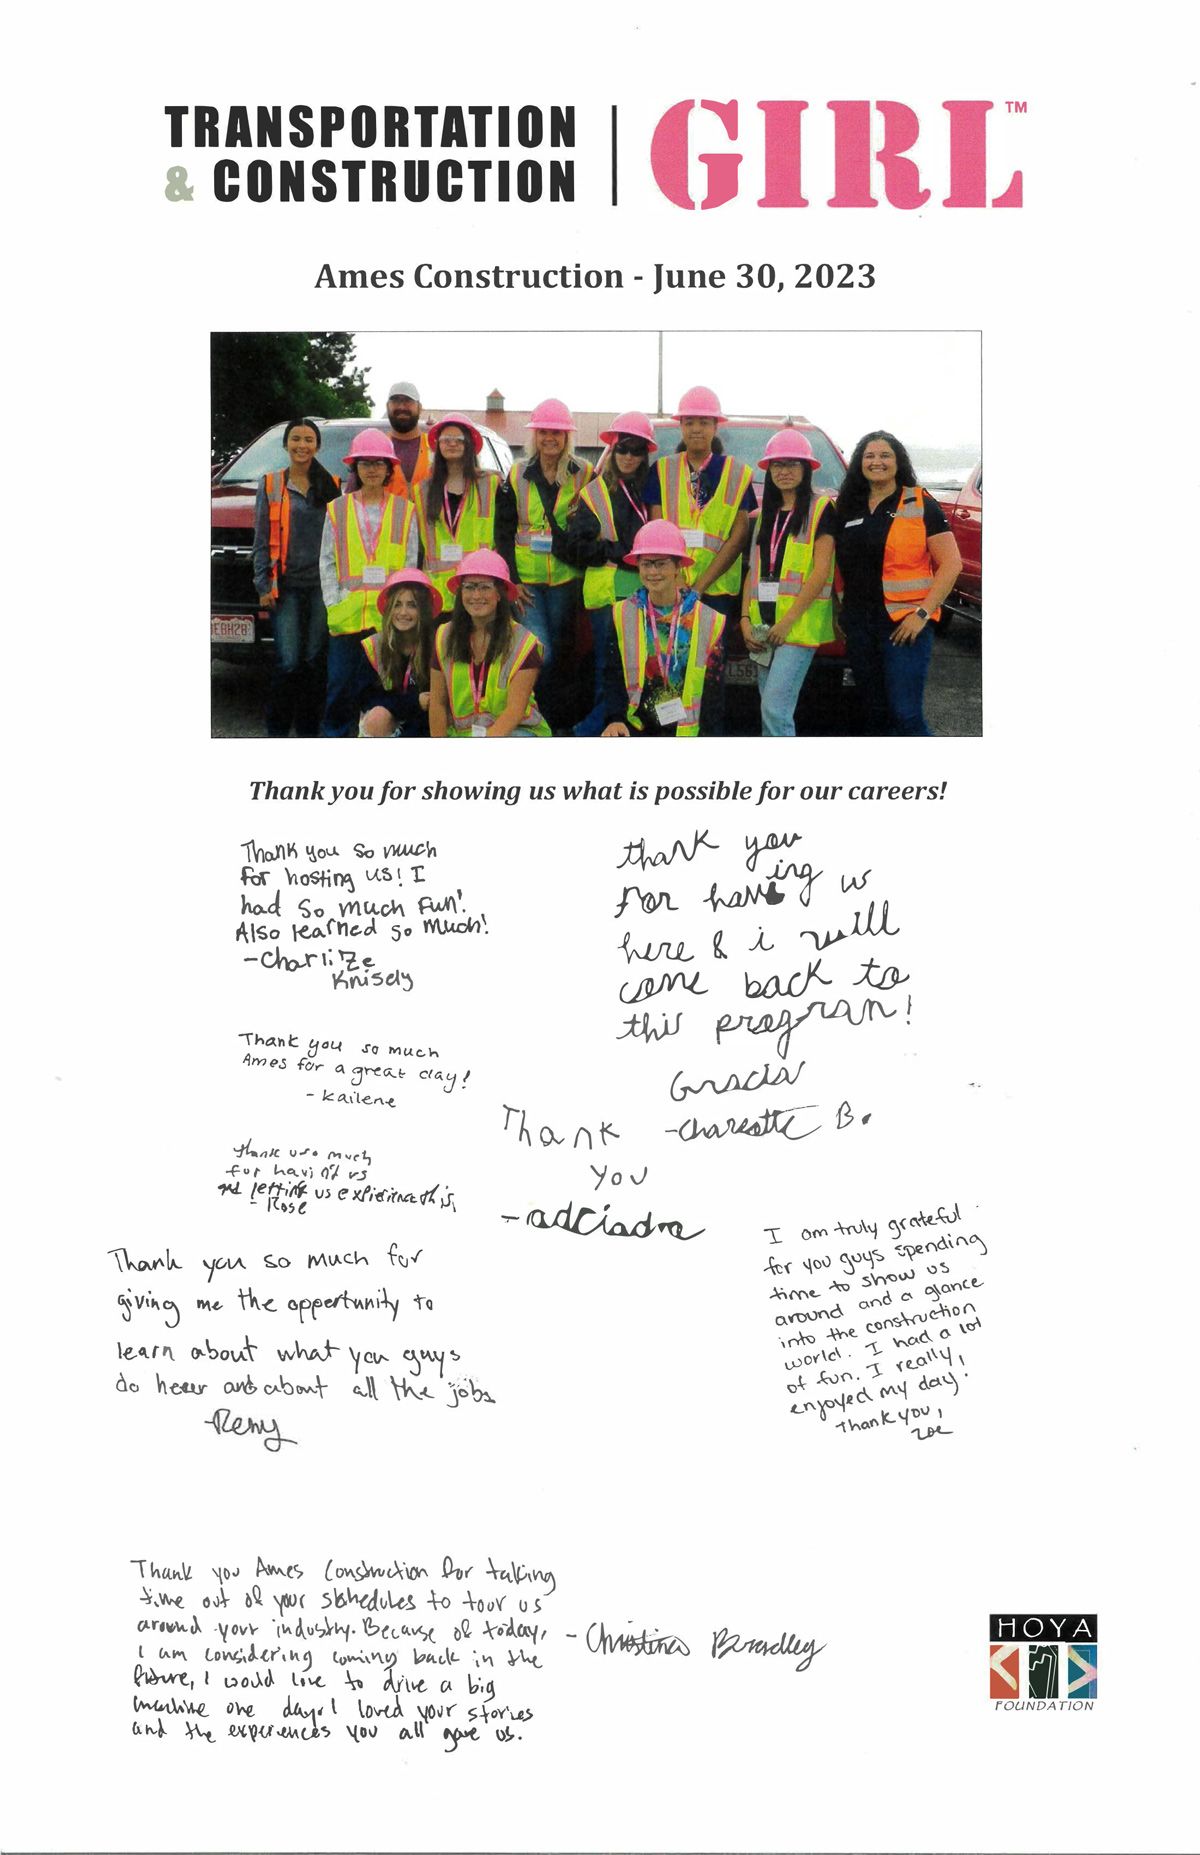 TRANSPORTATION
& CONSTRUCTION
GIRL™
Ames Construction - June 30, 2023
EBH2B
L561
Thank you for showing us what is possible for our careers!
Thank you so much
for hosting us! I
had so much fun!
Also learned so much!
-Charlize
Knisely
thank you
for having us
here & i will
come back to
this program!
Gracias
-Charlotte B.
Thank you so much
Ames for a great day!
- Kailene
Thank
you
-
Thank u so much
for having us
and letting us experience this,
- Rose
Thank you so much for
giving me the opportunity to
learn about what you guys
do heer and about all the jobs
-Remy
I am truly grateful
for you guys spending
time to show us
around and a glance
into the construction
world. I had a lot
of fun. I really,
enjoyed my day.
Thank you,
Zoe
Thank you Ames Construction for taking
time out of your schedules to tour us
around your industry. Because of today,
I am considering coming back in the
future, I would love to drive a big
machine one day. I loved your stories
and the experiences you all gave us.
- Christina Bradley
HOYA
FOUNDATION